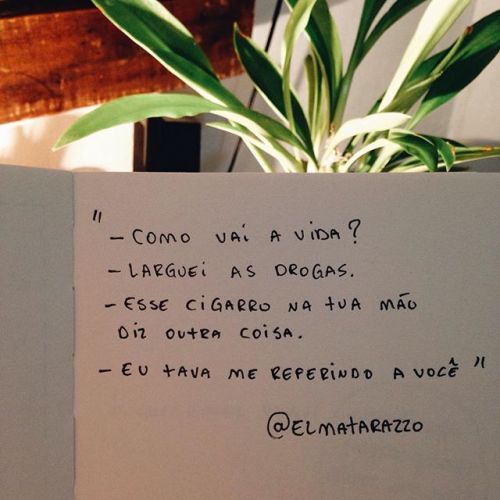 "
– COMO VAI A VIDA?
– LARGUEI AS DROGAS.
– ESSE CIGARRO NA TUA MÃO
DIZ OUTRA COISA.
– EU TAVA ME REFERINDO A VOCÊ "
@ELMATARAZZO